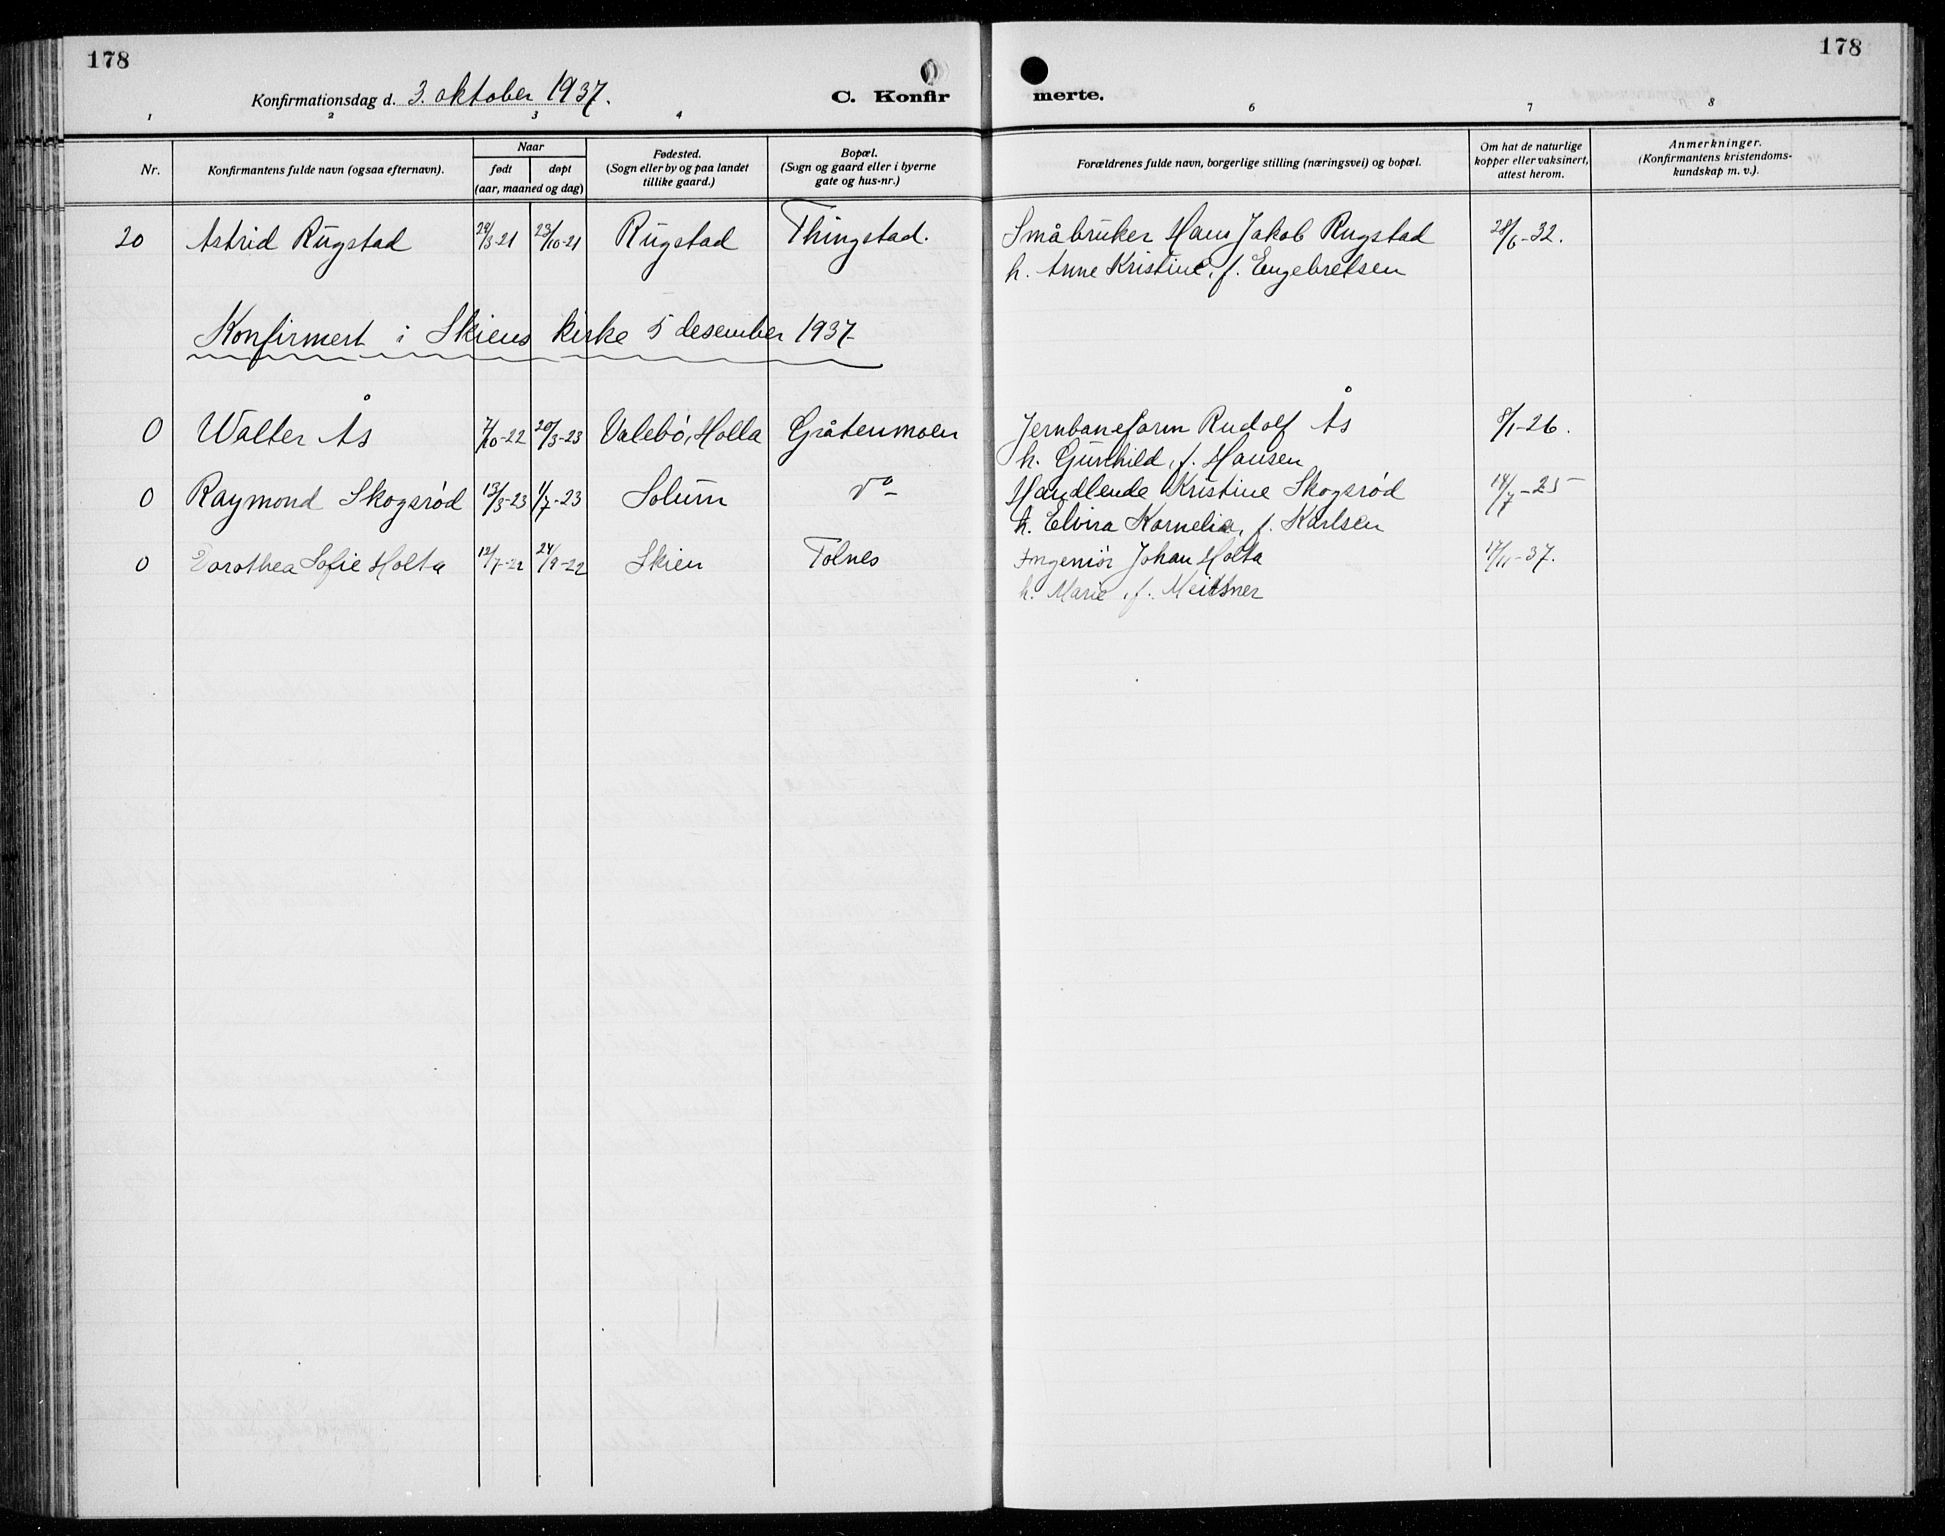 178
178
Konfirmationsdag d. 3. oktober 1937.
C. Konfir
merte.
1 2 3 4 6 7 8
Nr.
Konfirmantens fulde navn (ogsaa efternavn).
Naar
født
døpt
(aar, maaned og dag)
Fødested.
(Sogn eller by og paa landet
tillike gaard.)
Bopæl.
(Sogn og gaard eller i byerne
gate og hus-nr.)
Forældrenes fulde navn, borgerlige stilling (næringsvei) og bopæl.
Om hat de naturlige
kopper eller vaksinert,
attest herom.
Anmerkninger.
(Konfirmantens kristendoms-
kundskap m. v.).
20 Astrid Rugstad 29/3-21 23/10-21 Rugstad Thingstad. Småbruker Hans Jakob Rugstad 28/6-32.
h. Anne Kristine, f. Engebretsen
Konfirmert i Skiens kirke 5 desember 1937
0 Walter Ås 7/10-22 20/3-23 Valebø, Holla Gråtenmoen Jernbaneform Rudolf Ås 8/1-26.
h. Gunhild, f. Hansen
0 Raymond Skogsrød 13/3-23 1/7-23 Solum do Handlende Kristine Skogsrød 14/7-25
h. Elvira Kornelia, f. Karlsen
0 Dorothea Sofie Holta 12/7-22 24/9-22 Skien Tolnes Ingeniør Johan Holta 17/11-37.
h. Marie, f.